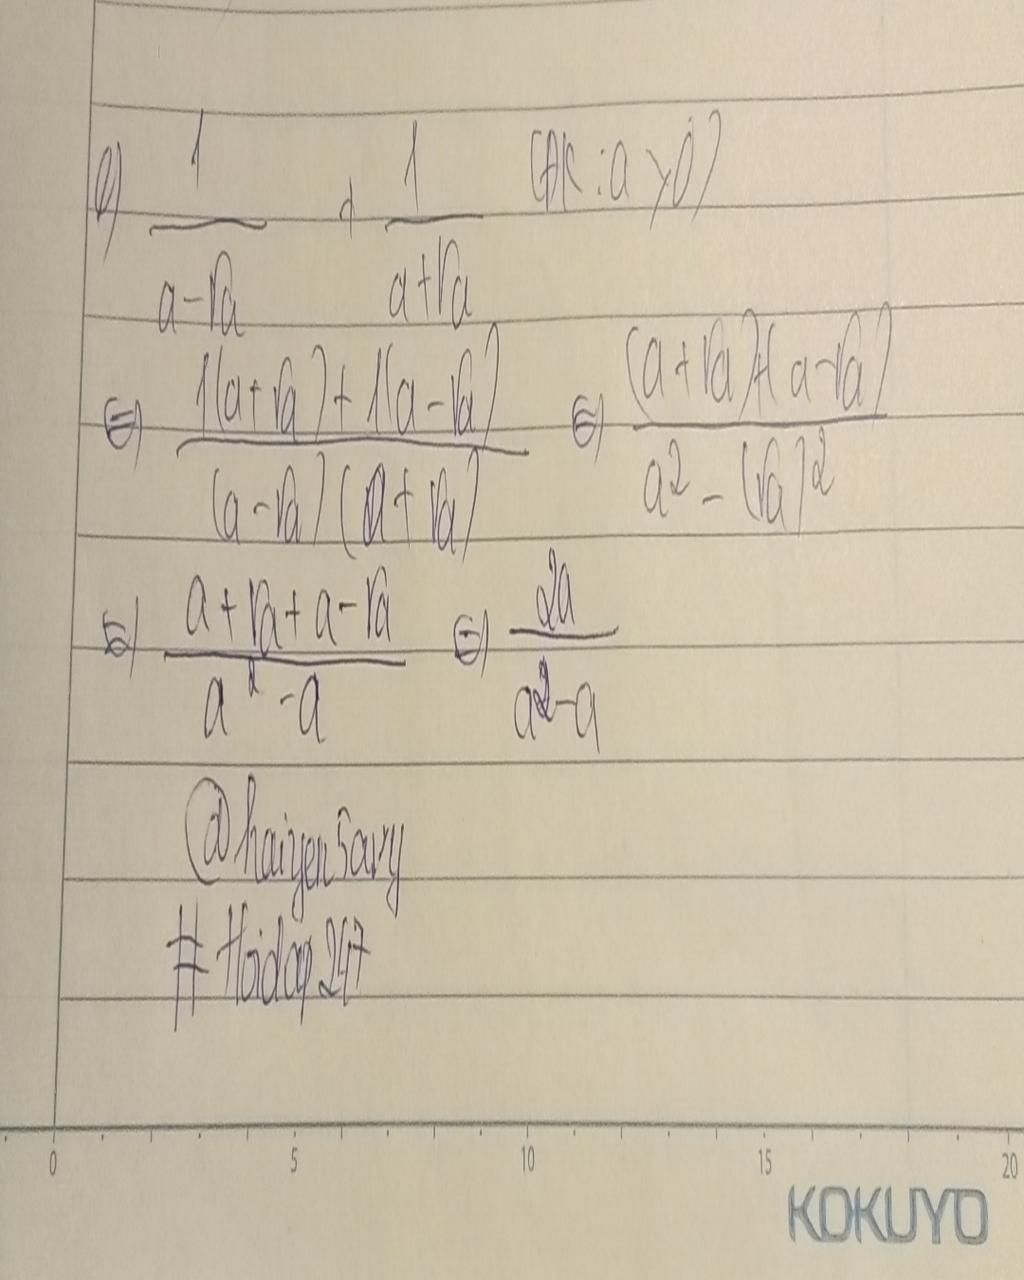 e) 1/(a-√a) + 1/(a+√a) (ĐK: a>0)
⇔ (1(a+√a)+1(a-√a))/((a-√a)(a+√a)) ⇔ ((a+√a)+(a-√a))/(a²-(√a)²)
⇔ (a+√a+a-√a)/(a²-a) ⇔ 2a/(a²-a)
@haiyen5avy
#Hoidap247
0 5 10 15 20
KOKUYO